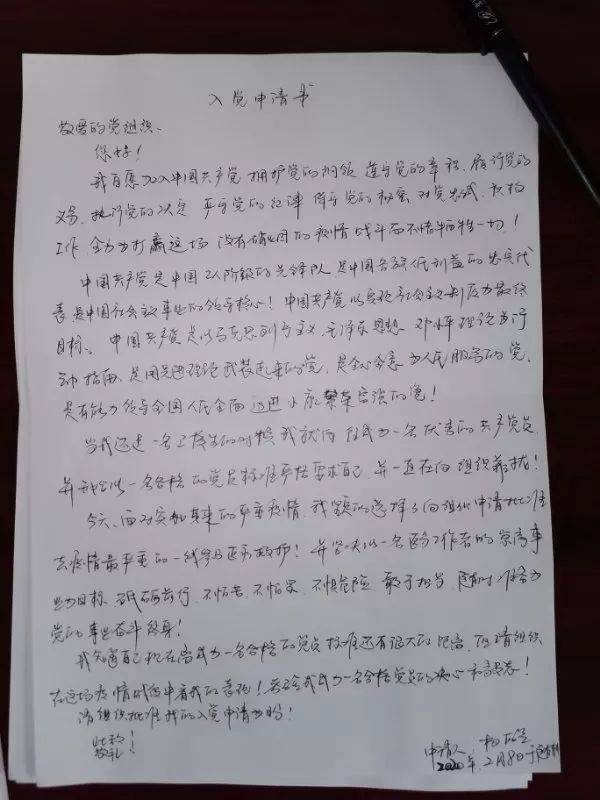 入党申请书
敬爱的党组织、
您好！
我自愿加入中国共产党 拥护党的纲领 遵守党的章程、履行党的
义务、执行党的决定 严守党的纪律 保守党的秘密 对党忠诚、积极
工作 全力为打赢这场没有硝烟的疫情战斗而不惜牺牲一切！
中国共产党是中国工人阶级的先锋队 是中国各族人民利益的忠实代
表 是中国社会主义事业的领导核心！中国共产党以实现共产主义制度为最终
目标、中国共产党是以马克思列宁主义、毛泽东思想、邓小平理论为行
动指南、是用先进理论武装起来的党、是全心全意为人民服务的党、
是有能力领导全国人民全面迈进小康繁荣富强的党！
当我还是一名卫校生的时候 我就 成为一名优秀的共产党员、
并 以一名合格的党员标准严格要求自己、并一直在向组织靠拢！
今天、面对突如其来的严重疫情、我 的选择了向组织申请批准
去疫情最严重的一线 救护！并坚决以一名医务工作者的崇高事
业为目标 砥砺前行、不怕苦、不怕累、不惧危险 敢于担当、随时准备为
党的事业奋斗终身！
我知道自己现在离成为一名合格的党员标准还有很大的距离、但请组织
在这场疫情 中看我的表现！ 我成为一名合格党员的决心和 ！
请组织批准我的入党申请为盼！
此致
敬礼！
申请人、杨
2020年、2月8日于